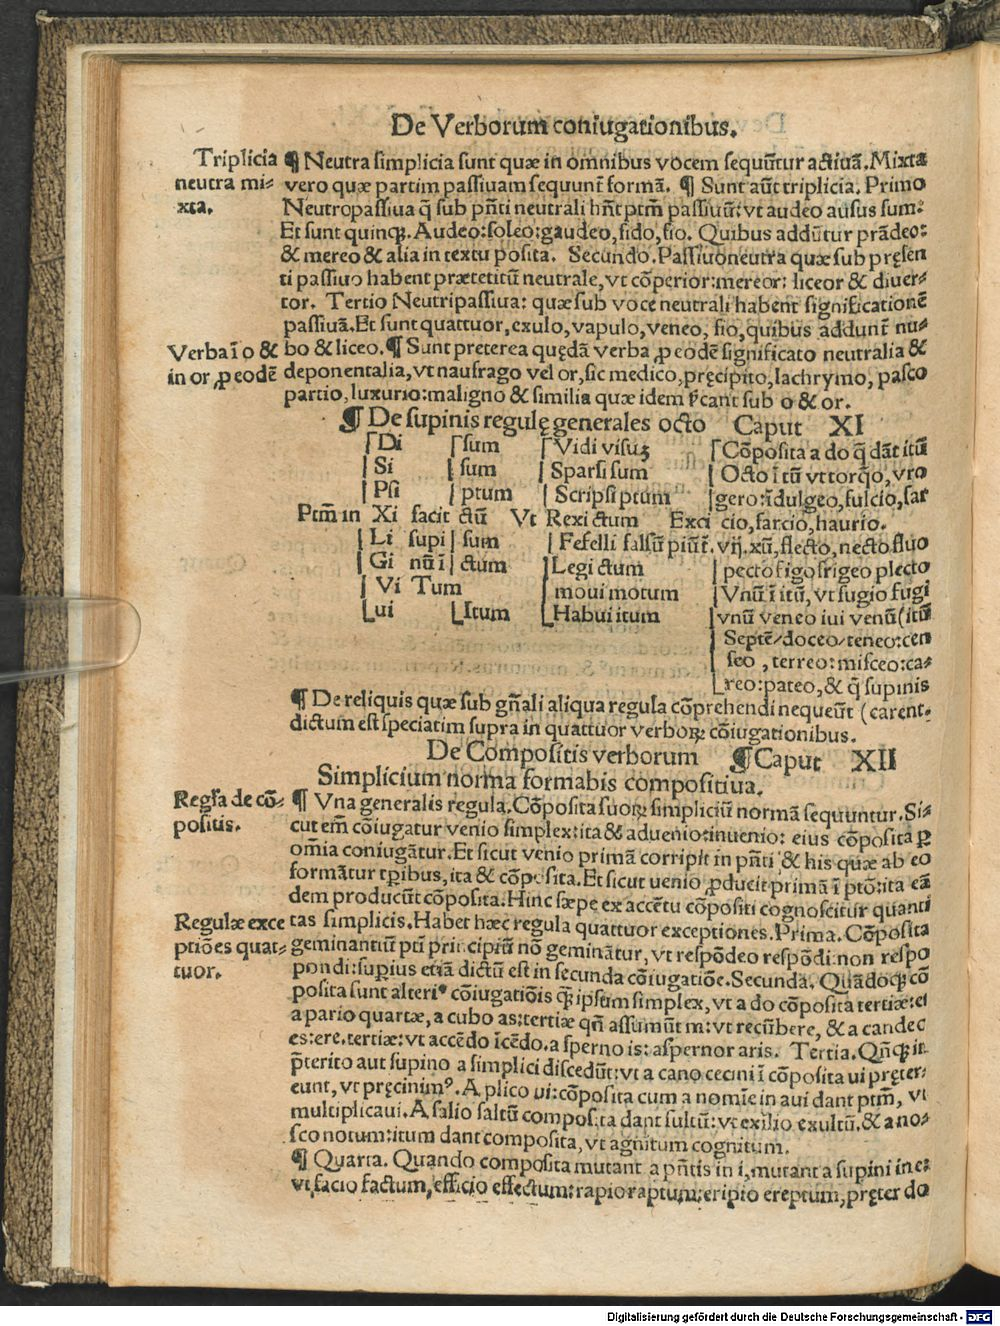 De Verborum coniugationibus.
Triplicia
neutra mi-
xta.
¶ Neutra simplicia sunt quæ in omnibus vocem sequũtur actiuã. Mixta
vero quæ partim passiuam sequunt̃ formã. ¶ Sunt aũt triplicia. Primo
Neutropassiua q̃ sub pñti neutrali hñt ptm̃ passiuũ: vt audeo ausus sum:
Et sunt quinqꝫ. Audeo: soleo: gaudeo, fido, fio. Quibus addũtur prãdeo:
& mereo & alia in textu posita. Secundo. Passiuoneutra quæ sub pręsen
ti passiuo habent prætetitũ neutrale, vt cõperior: mereor: liceor & diuer-
tor. Tertio Neutripassiua: quæ sub voce neutrali habent significationẽ
passiuã. Et sunt quattuor, exulo, vapulo, veneo, fio, quibus addunt̃ nu-
Verba ĩ o &
in or, ꝓ eodẽ
bo & liceo. ¶ Sunt preterea quędã verba ꝓ eodẽ significato neutralia &
deponentalia, vt naufrago vel or, sic medico, pręcipito, lachrymo, pasco
partio, luxurio: maligno & similia quæ idem s̃cant sub o & or.
¶ De supinis regulę generales octo Caput XI
Ptm̃ in
Di
Si
Psi
Xi
Li
Gi
Vi
Lui
facit
supi
nũ ĩ
sum
sum
ptum
ctũ
sum
ctum
Tum
Itum
Vt
Vidi visuꝫ
Sparsi sum
Scripsi ptum
Rexi ctum
Fefelli falsũ
Legi ctum
moui motum
Habui itum
Exci
piũt̃.
Cõposita a do q̃ dãt itũ
Octo ĩ tũ vt torq̃o, vro
gero: ĩdulgeo, fulcio, sar
cio, farcio, haurio.
vij. xũ, flecto, necto fluo
pecto figo frigeo plecto
Vnũ ĩ itũ, vt fugio fugi
vnũ veneo iui venũ (itũ
Septẽ/doceo/teneo: cen
seo, terreo: misceo: ca-
reo: pateo, & q̃ supinis
¶ De reliquis quæ sub gñali aliqua regula cõprehendi nequeũt (carent.
dictum est speciatim supra in quattuor verboꝝ cõiugationibus.
De Compositis verborum ¶ Caput XII
Simplicium norma formabis compositiua.
Regľa de cõ-
positis.
¶ Vna generalis regula. Cõposita suoꝝ simpliciũ normã sequuntur. Si-
cut em̃ cõiugatur venio simplex: ita & aduenio: inuenio: eius cõposita ꝑ
omĩa coniugãtur. Et sicut venio primã corripit in pñti & his quæ ab eo
formãtur tꝑibus, ita & cõposita. Et sicut uenio ꝓducit primã ĩ ptõ: ita eã
dem producũt cõposita. Hinc sæpe ex accẽtu cõpositi cognoscitur quanti
Regulæ exce
ptiões quat-
tuor.
tas simplicis. Habet hæc regula quattuor exceptiones. Prima. Cõposita
geminantiũ pti principiũ nõ geminãtur, vt respõdeo respõdi: non respo
pondi: supius etiã dictũ est in secunda cõiugatiõe. Secunda. Quãdoqꝫ cõ
posita sunt alteriꝰ cõiugatiõis q̃ ipsum simplex, vt a do cõposita tertiæ: et
a pario quartæ, a cubo as: tertiæ qñ assumũt m: vt recũbere, & a candeo
es: ere. tertiæ: vt accẽdo ĩcẽdo. a sperno is: aspernor aris. Tertia. Qñqꝫ in
p̃terito aut supino a simplici discedũt: vt a cano cecini ĩ cõposita ui pręter-
eunt, vt pręcinimꝰ. A plico ui: cõposita cum a nomĩe in aui dant ptm̃, vt
multiplicaui. A salio saltũ composita dant sultũ: vt exilio exultũ. & a no-
sco notum: itum dant composita, vt agnitum cognitum.
¶ Quarta. Quando composita mutant a pñtis in i, mutant a supini in e:
vt, facio factum, efficio effectum: rapio raptum: eripio ereptum, pręter do
Digitalisierung gefördert durch die Deutsche Forschungsgemeinschaft - DFG